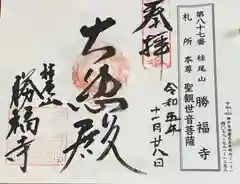 第八十七番 桂尾山 勝福寺
札所 本尊 聖観世音菩薩
奉拝
令和五年
十一月廿八日
大悲殿
桂尾山
勝福寺